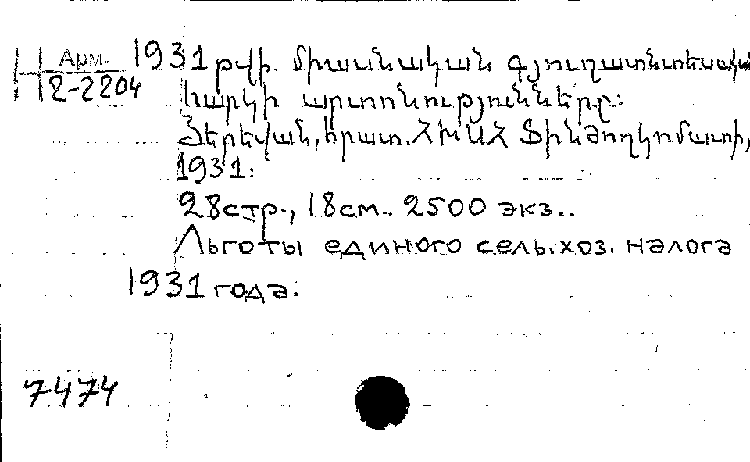 Арм. 1931 թվի միասնական գյուղատնտեսական
2-2204 հարկի արտոնությունները:
Յերեվան, հրատ. ՀԽՍՀ Ֆինժողկոմատի,
1931.
28 стр., 18 см.. 2500 экз..
Льготы единого сель.хоз. налога
1931 года.
7474